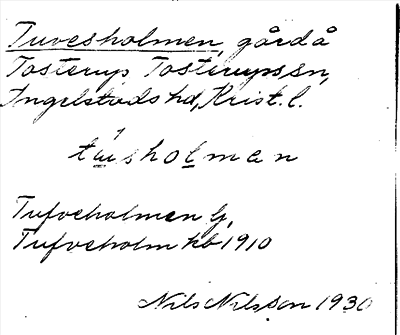 Tuvesholmen, gård å
Tosterup Tosterups sn,
Ingelstads hd, Krist. l.
túsholman
Tufveholmen Gj,
Tufveholm kb 1910
Nils Nilsson 1930